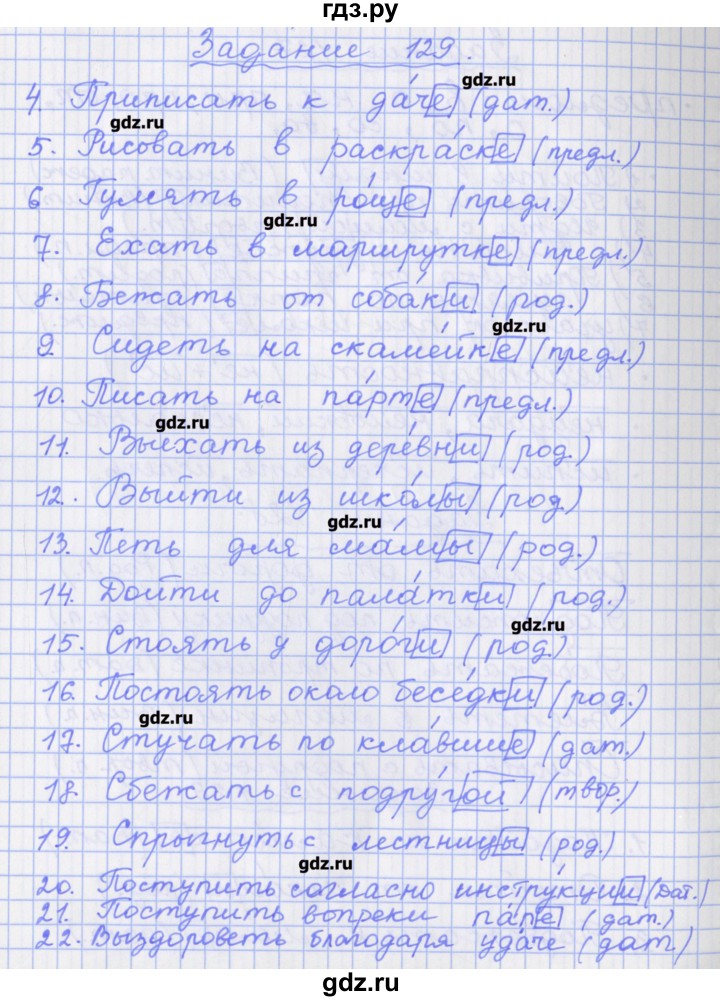 гдз.ру
Задание 129.
gdz.ru
4. Приписать к да́че (дат.)
gdz.ru
5. Рисовать в раскра́ске (предл.)
6 Гулять в ро́ще (предл.)
gdz.ru
7. Ехать в маршру́тке (предл.)
8. Бежать от соба́ки (род.)
gdz.ru
9. Сидеть на скаме́йке (предл.)
10. Писать на па́рте (предл.)
gdz.ru
11. Выехать из дере́вни (род.)
12. Выйти из шко́лы (род.)
gdz.ru
13. Петь для ма́мы (род.)
14. Дойти до пала́тки (род.)
gdz.ru
15. Стоять у доро́ги (род.)
16. Постоять около бесе́дки (род.)
gdz.ru
17. Стучать по кла́више (дат.)
18. Сбежать с подру́гой (твор.)
19. Спрыгнуть с лестницы (род.)
gdz.ru
20. Поступить согласно инстру́кции (Дат.)
21. Поступить вопреки па́ре (дат.)
22. Выздороветь благодаря уда́че (дат.)
gdz.ru